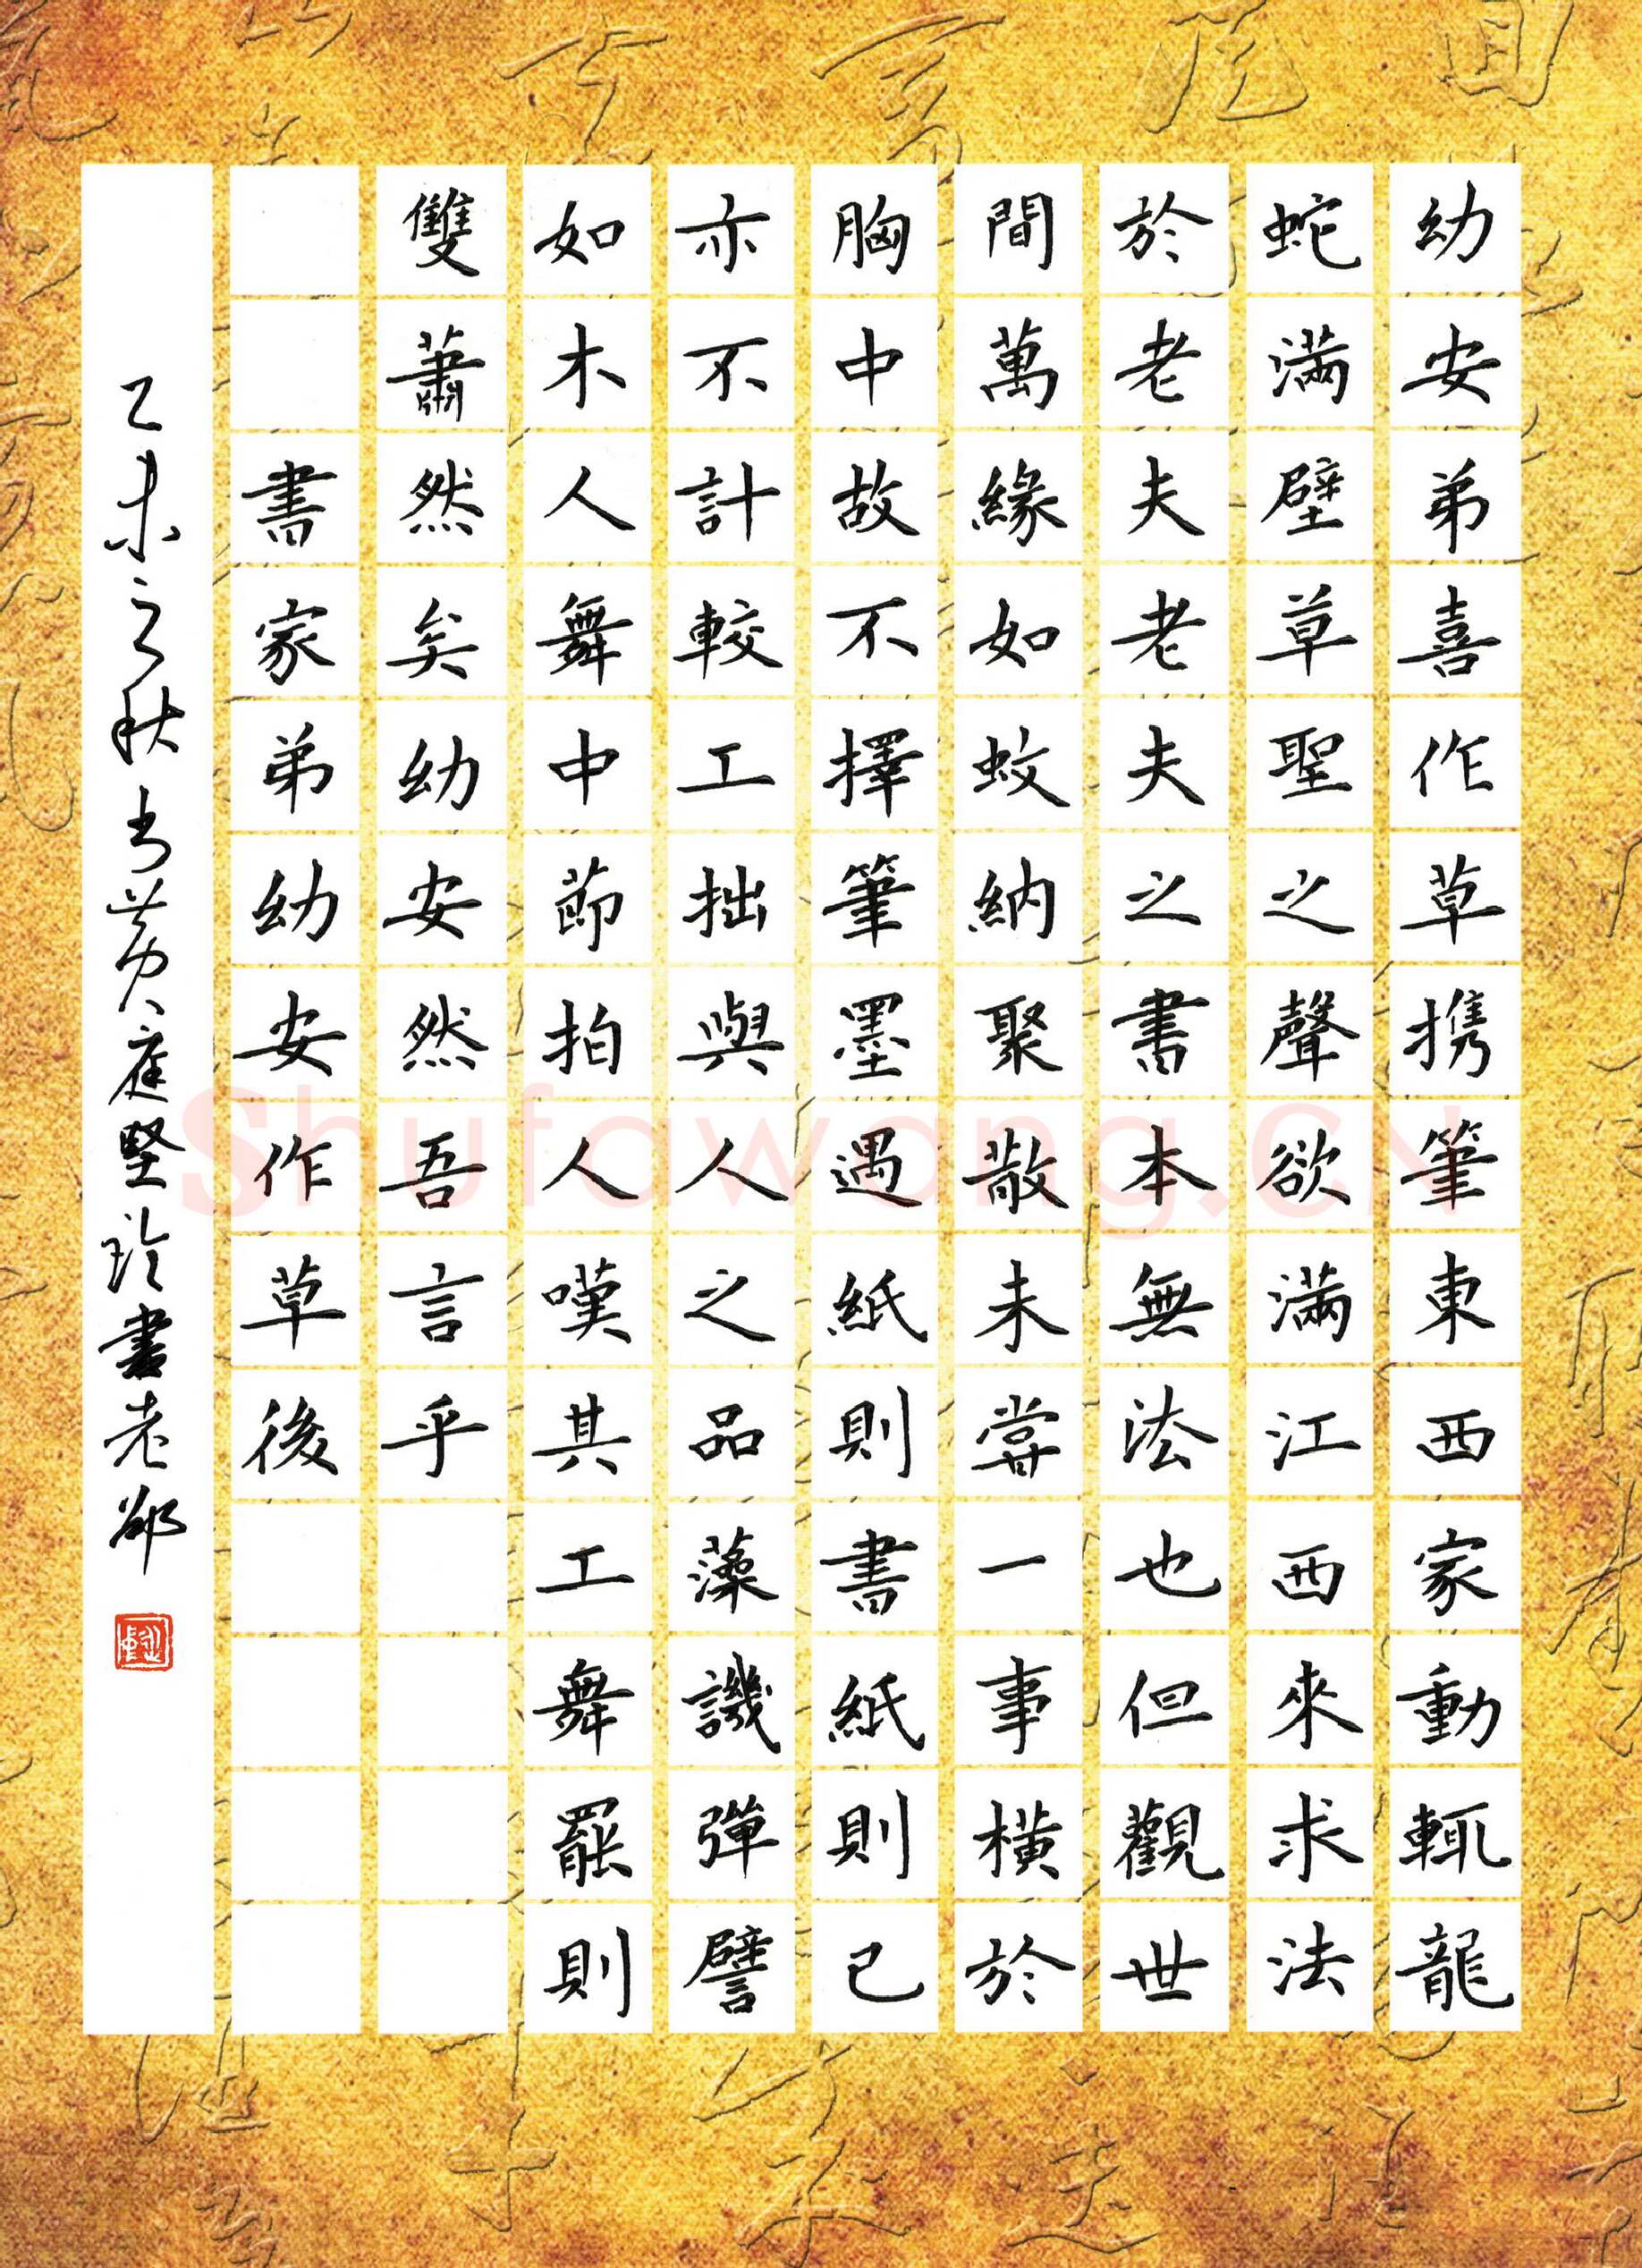 幼安弟喜作草携筆東西家動輒龍
蛇滿壁草聖之聲欲滿江西來求法
於老夫老夫之書本無法也但觀世
間萬緣如蚊納聚散未嘗一事橫於
胸中故不擇筆墨遇紙則書紙則已
亦不計較工拙與人之品藻譏彈譬
如木人舞中節拍人嘆其工舞罷則
雙蕭然矣幼安然吾言乎
書家弟幼安作草後
乙未之秋书黄庭堅
書老
Shufawang.CN